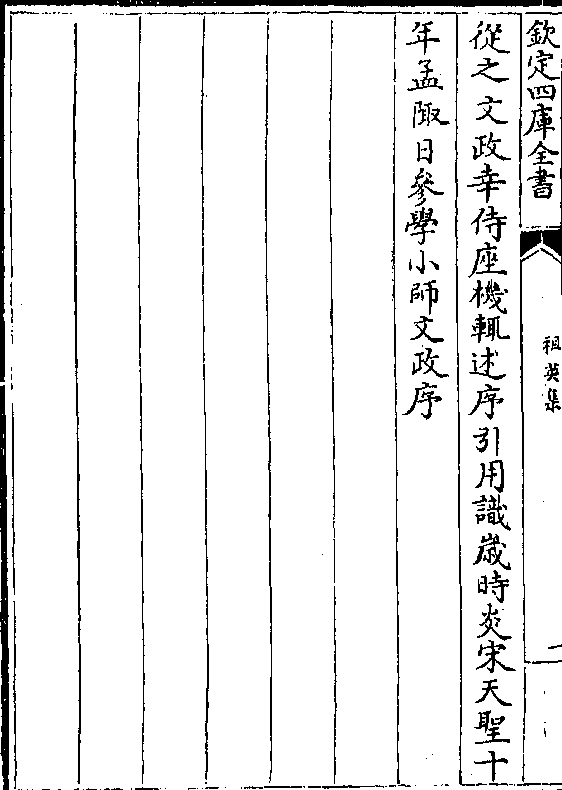 欽定四庫全書
祖英集
二
從之文政幸侍座機輒述序引用識歲時炎宋天聖十
年孟陬日參學小師文政序